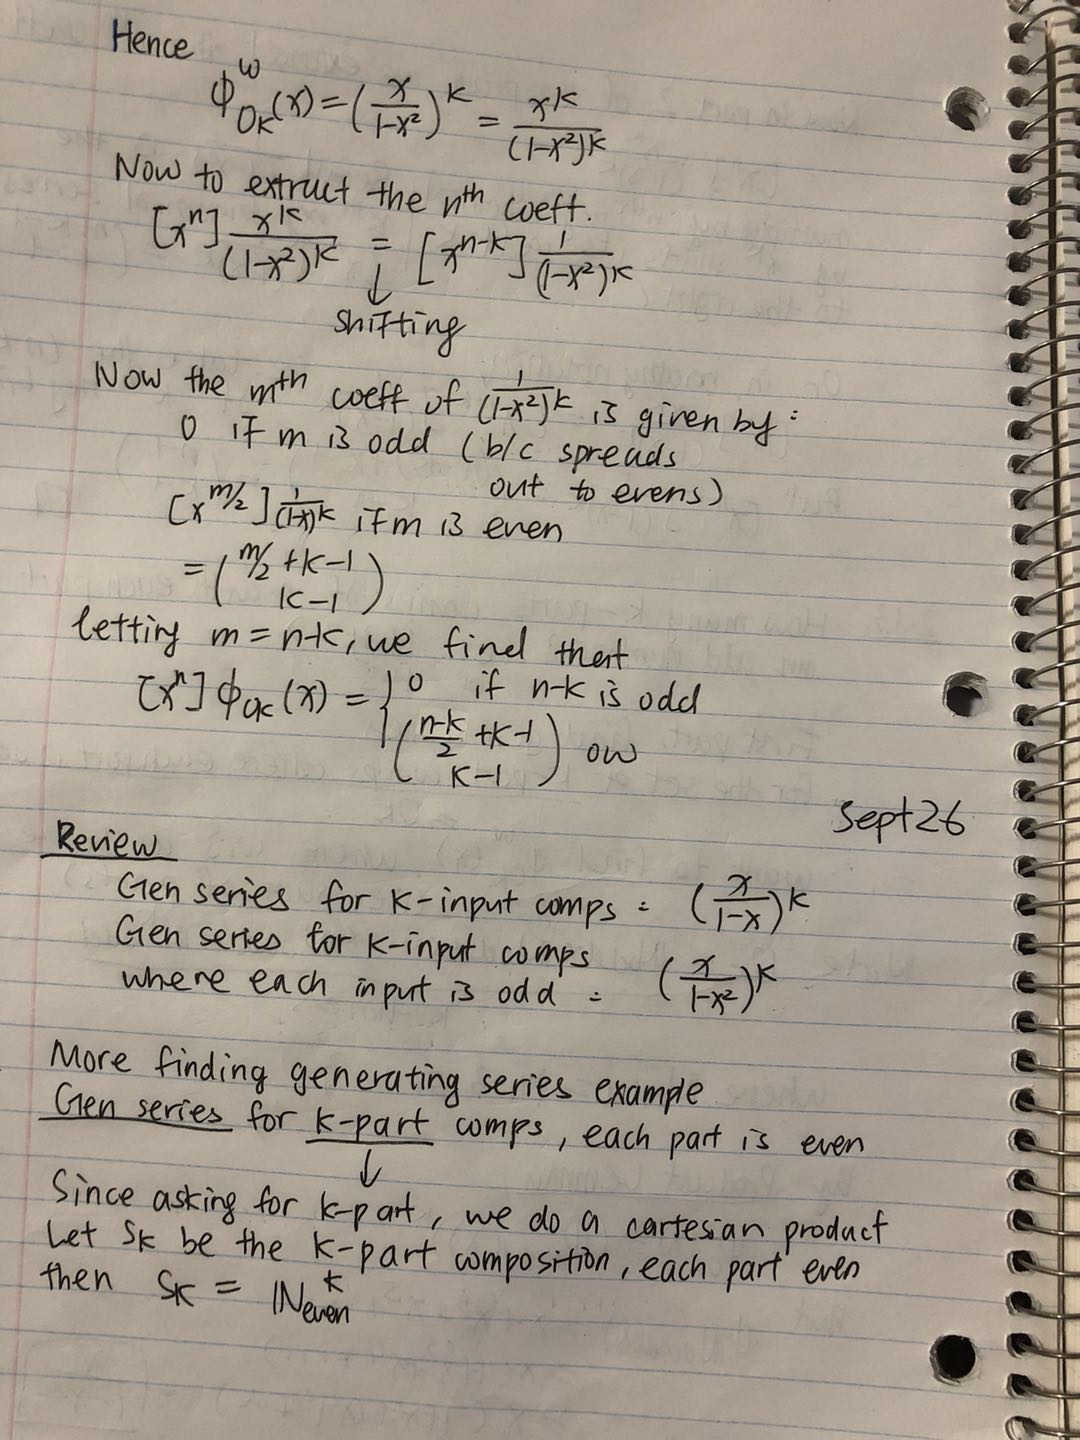 Hence
Φ^ω_{O_K}(x) = (x/(1-x²))^K = x^K/(1-x²)^K
Now to extract the n^th coeff.
[x^n] x^K/(1-x²)^K = [x^{n-K}] 1/(1-x²)^K
↓
shifting
Now the m^th coeff of 1/(1-x²)^K is given by:
0 if m is odd (b/c spreads
out to evens)
[x^{m/2}] 1/(1-x)^K if m is even
= (m/2 + K-1
K-1)
letting m = n-K, we find that
[x^n] Φ_{O_K}(x) = { 0 if n-K is odd
((n-K)/2 + K-1
K-1) ow
Sept 26
Review
Gen series for K-input comps = (x/(1-x))^K
Gen series for K-input comps
where each input is odd = (x/(1-x²))^K
More finding generating series example
Gen series for K-part comps, each part is even
↓
Since asking for K-part, we do a cartesian product
Let S_K be the K-part composition, each part even
then S_K = ℕ_{even}^K